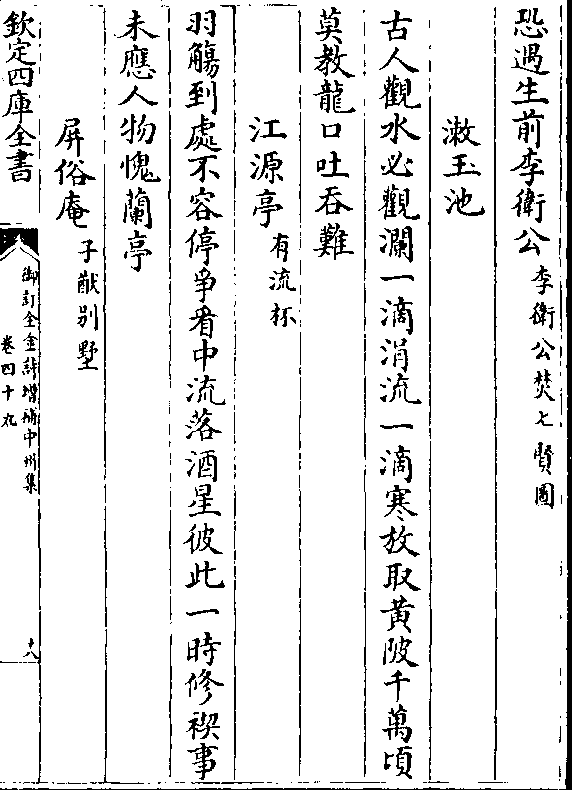 恐遇生前李衛公李衛公焚七賢圖
漱玉池
古人觀水必觀瀾一滴涓流一滴寒放取黃陂千萬頃
莫教龍口吐吞難
江源亭有流杯
羽觴到處不容停爭看中流落酒星彼此一時修禊事
未應人物愧蘭亭
屏俗庵子猷别墅
欽定四庫全書
御訂全金詩增補中州集
卷四十九
十八